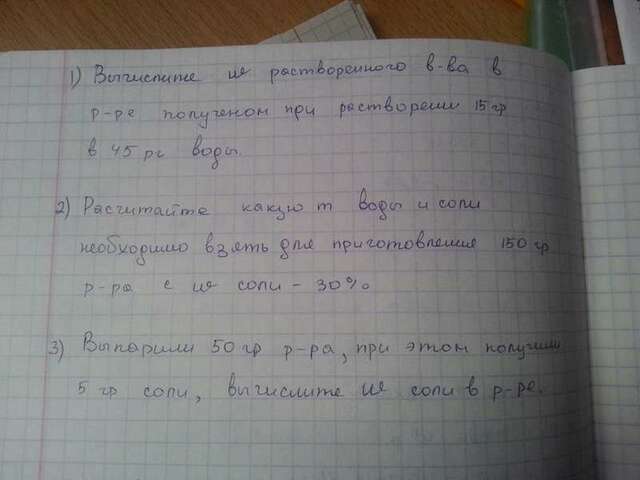 1) Вычислите w растворенного в-ва в
р-ре полученом при растворении 15 гр
в 45 рг воды.
2) Расчитайте какую m воды и соли
необходимо взять для приготовления 150 гр
р-ра с w соли - 30%
3) Выпарили 50 гр р-ра, при этом получили
5 гр соли, вычислите w соли в р-ре.